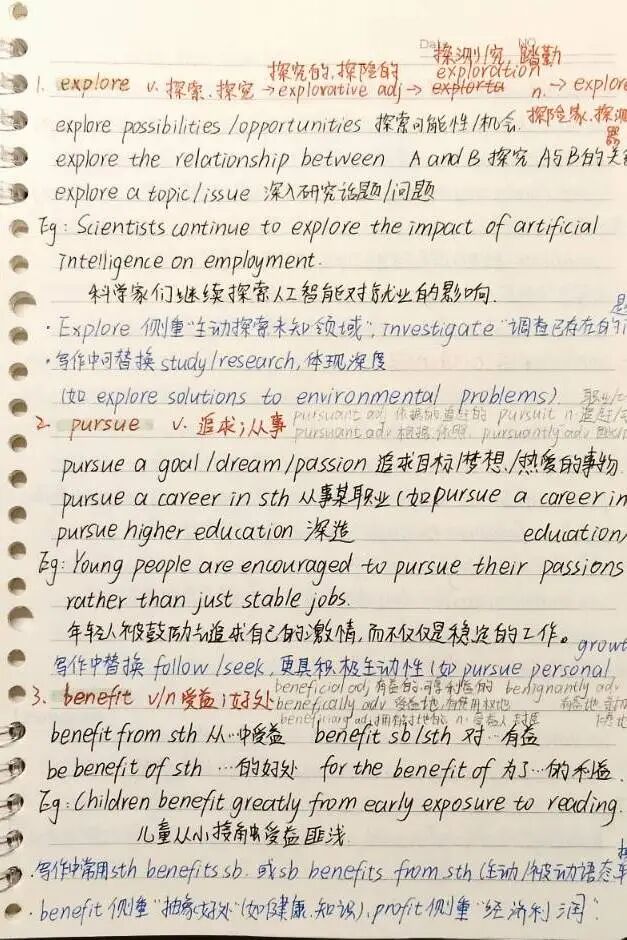 Date NO.
探究的,探险的 探测/究 踏勘
exploration
1. explore v. 探索、探究 → explorative adj → explorta n. → explore
探险家、探测器
explore possibilities/opportunities 探索可能性/机会.
explore the relationship between A and B 探究 A与B的关
explore a topic/issue 深入研究话题/问题
Eg: Scientists continue to explore the impact of artificial
intelligence on employment.
科学家们继续探索人工智能对就业的影响.
·Explore 侧重"主动探索未知领域", investigate "调查已存在的
·写作中可替换 study/research, 体现深度
(如 explore solutions to environmental problems)
2. pursue v. 追求;从事 pursuant adj 依据的 追赶的 pursuit n.追赶
pursuant adv 根据、依照. pursuantly adv
pursue a goal/dream/passion 追求目标/梦想/热爱的事物.
pursue a career in sth 从事某职业(如pursue a career in
pursue higher education 深造 education
Eg: Young people are encouraged to pursue their passions
rather than just stable jobs.
年轻人被鼓励去追求自己的激情,而不仅仅是稳定的工作。
growt
写作中替换 follow/seek, 更具积极主动性(如 pursue personal
3. benefit v/n 受益;好处 beneficial adj 有益的 可得利益的 benignantly adv
beneficially adv 受益地,有使用权地
benefit from sth 从…中受益 benefit sb/sth 对…有益
be benefit of sth …的好处 for the benefit of 为了…的利益.
Eg: Children benefit greatly from early exposure to reading.
儿童从小接触中受益匪浅.
·写作中常用sth benefits sb. 或sb benefits from sth (主动/被动语态
·benefit 侧重"抽象好处"(如健康.知识), profit侧重"经济利润".